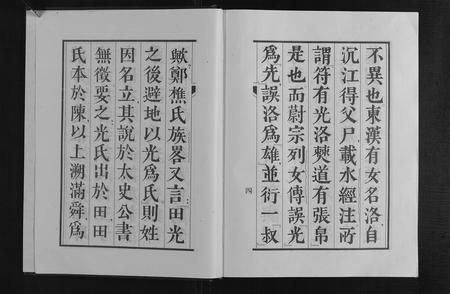 不異也東漢有女名洛自
沉江得父尸載水經注所
謂符有光洛僰道有張帛
是也而蔚宗列女傳誤光
爲先誤洛爲雄並衍一叔
四
歟鄭樵氏族畧又言田光
之後避地以光爲氏則姓
因名立其說於太史公書
無徵要之光氏出於田田
氏本於陳以上溯滿舜爲